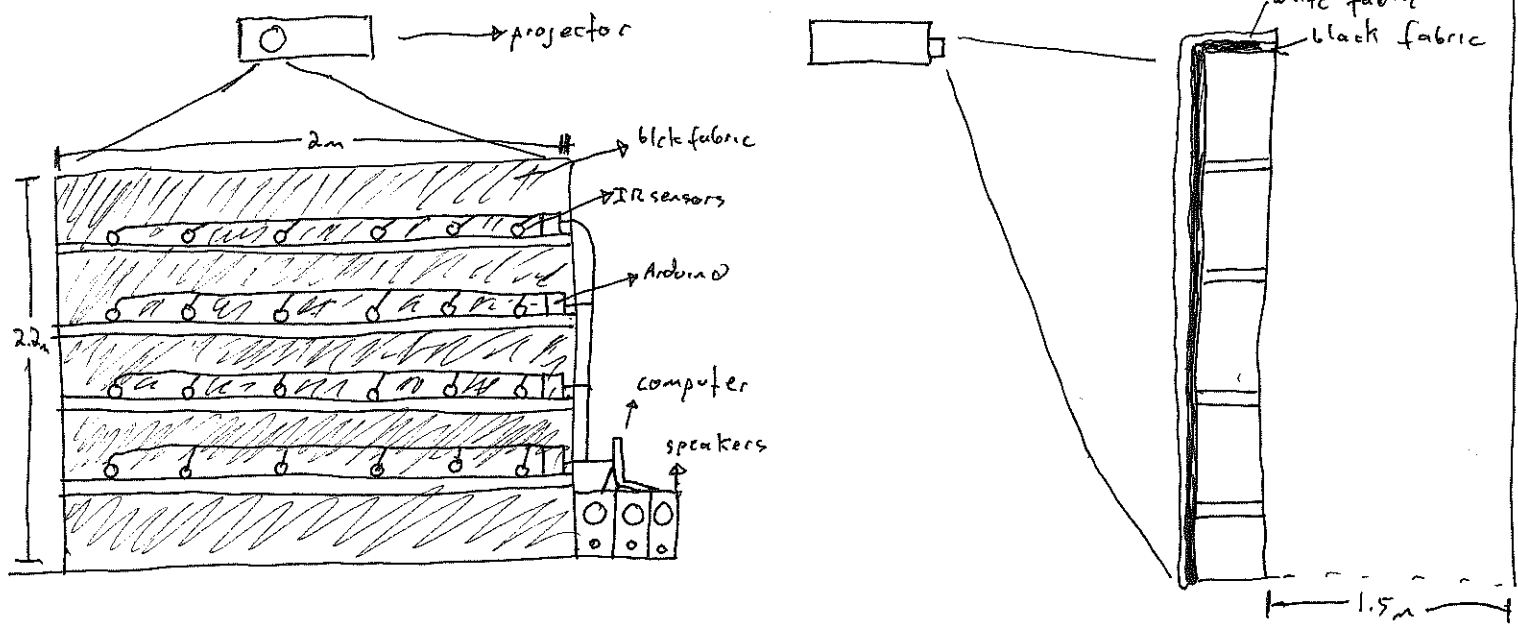 projector
2m
blck fabric
IR sensors
Arduino
2.2m
computer
speakers
white fabric
black fabric
1.5m